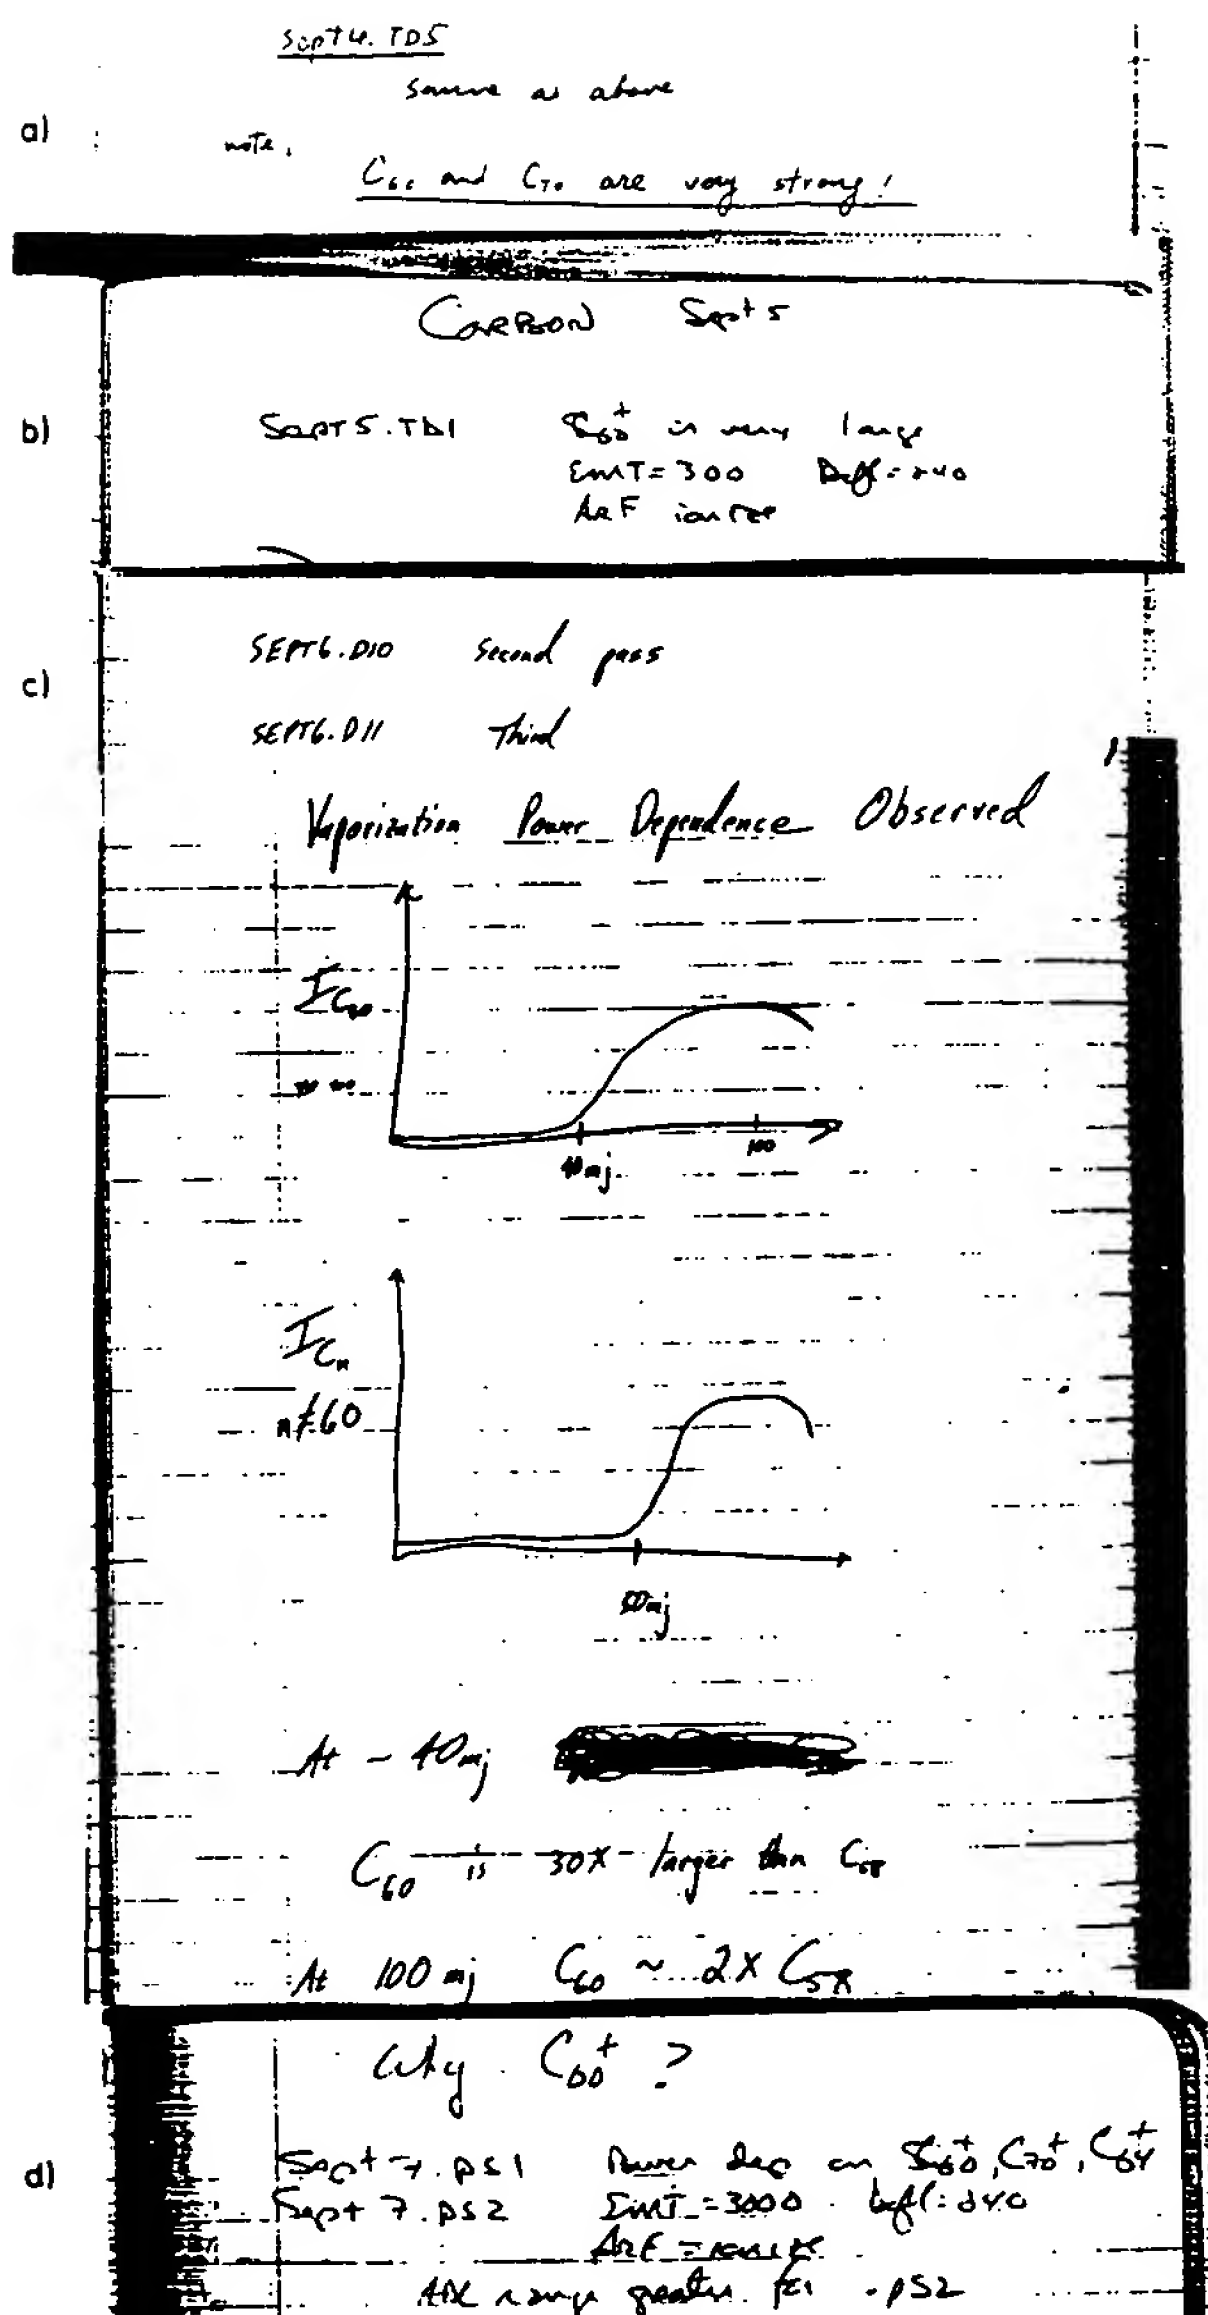 Sept 4. TD5
same as above
a)
note.
C60 and C70 are very strong!
CARBON Sept 5
b)
SEPT 5.TD1 C60+ is very large
EMT=300 Defl.=240
ArF ionize
c)
SEPT6.D10 Second pass
SEPT6.D11 Third
Vaporization Power Dependence Observed
IC60
40mj 100
ICn
n≠60
mj
At ~ 40mj
C60 is 30X larger than C58
At 100 mj C60 ~ 2X C58
Why C60+ ?
d)
Sept 7.ps1 Power dep on C60+, C70+, C64+
Sept 7.ps2 EMT=3000 Defl=240
ArF =
range greater for .ps2